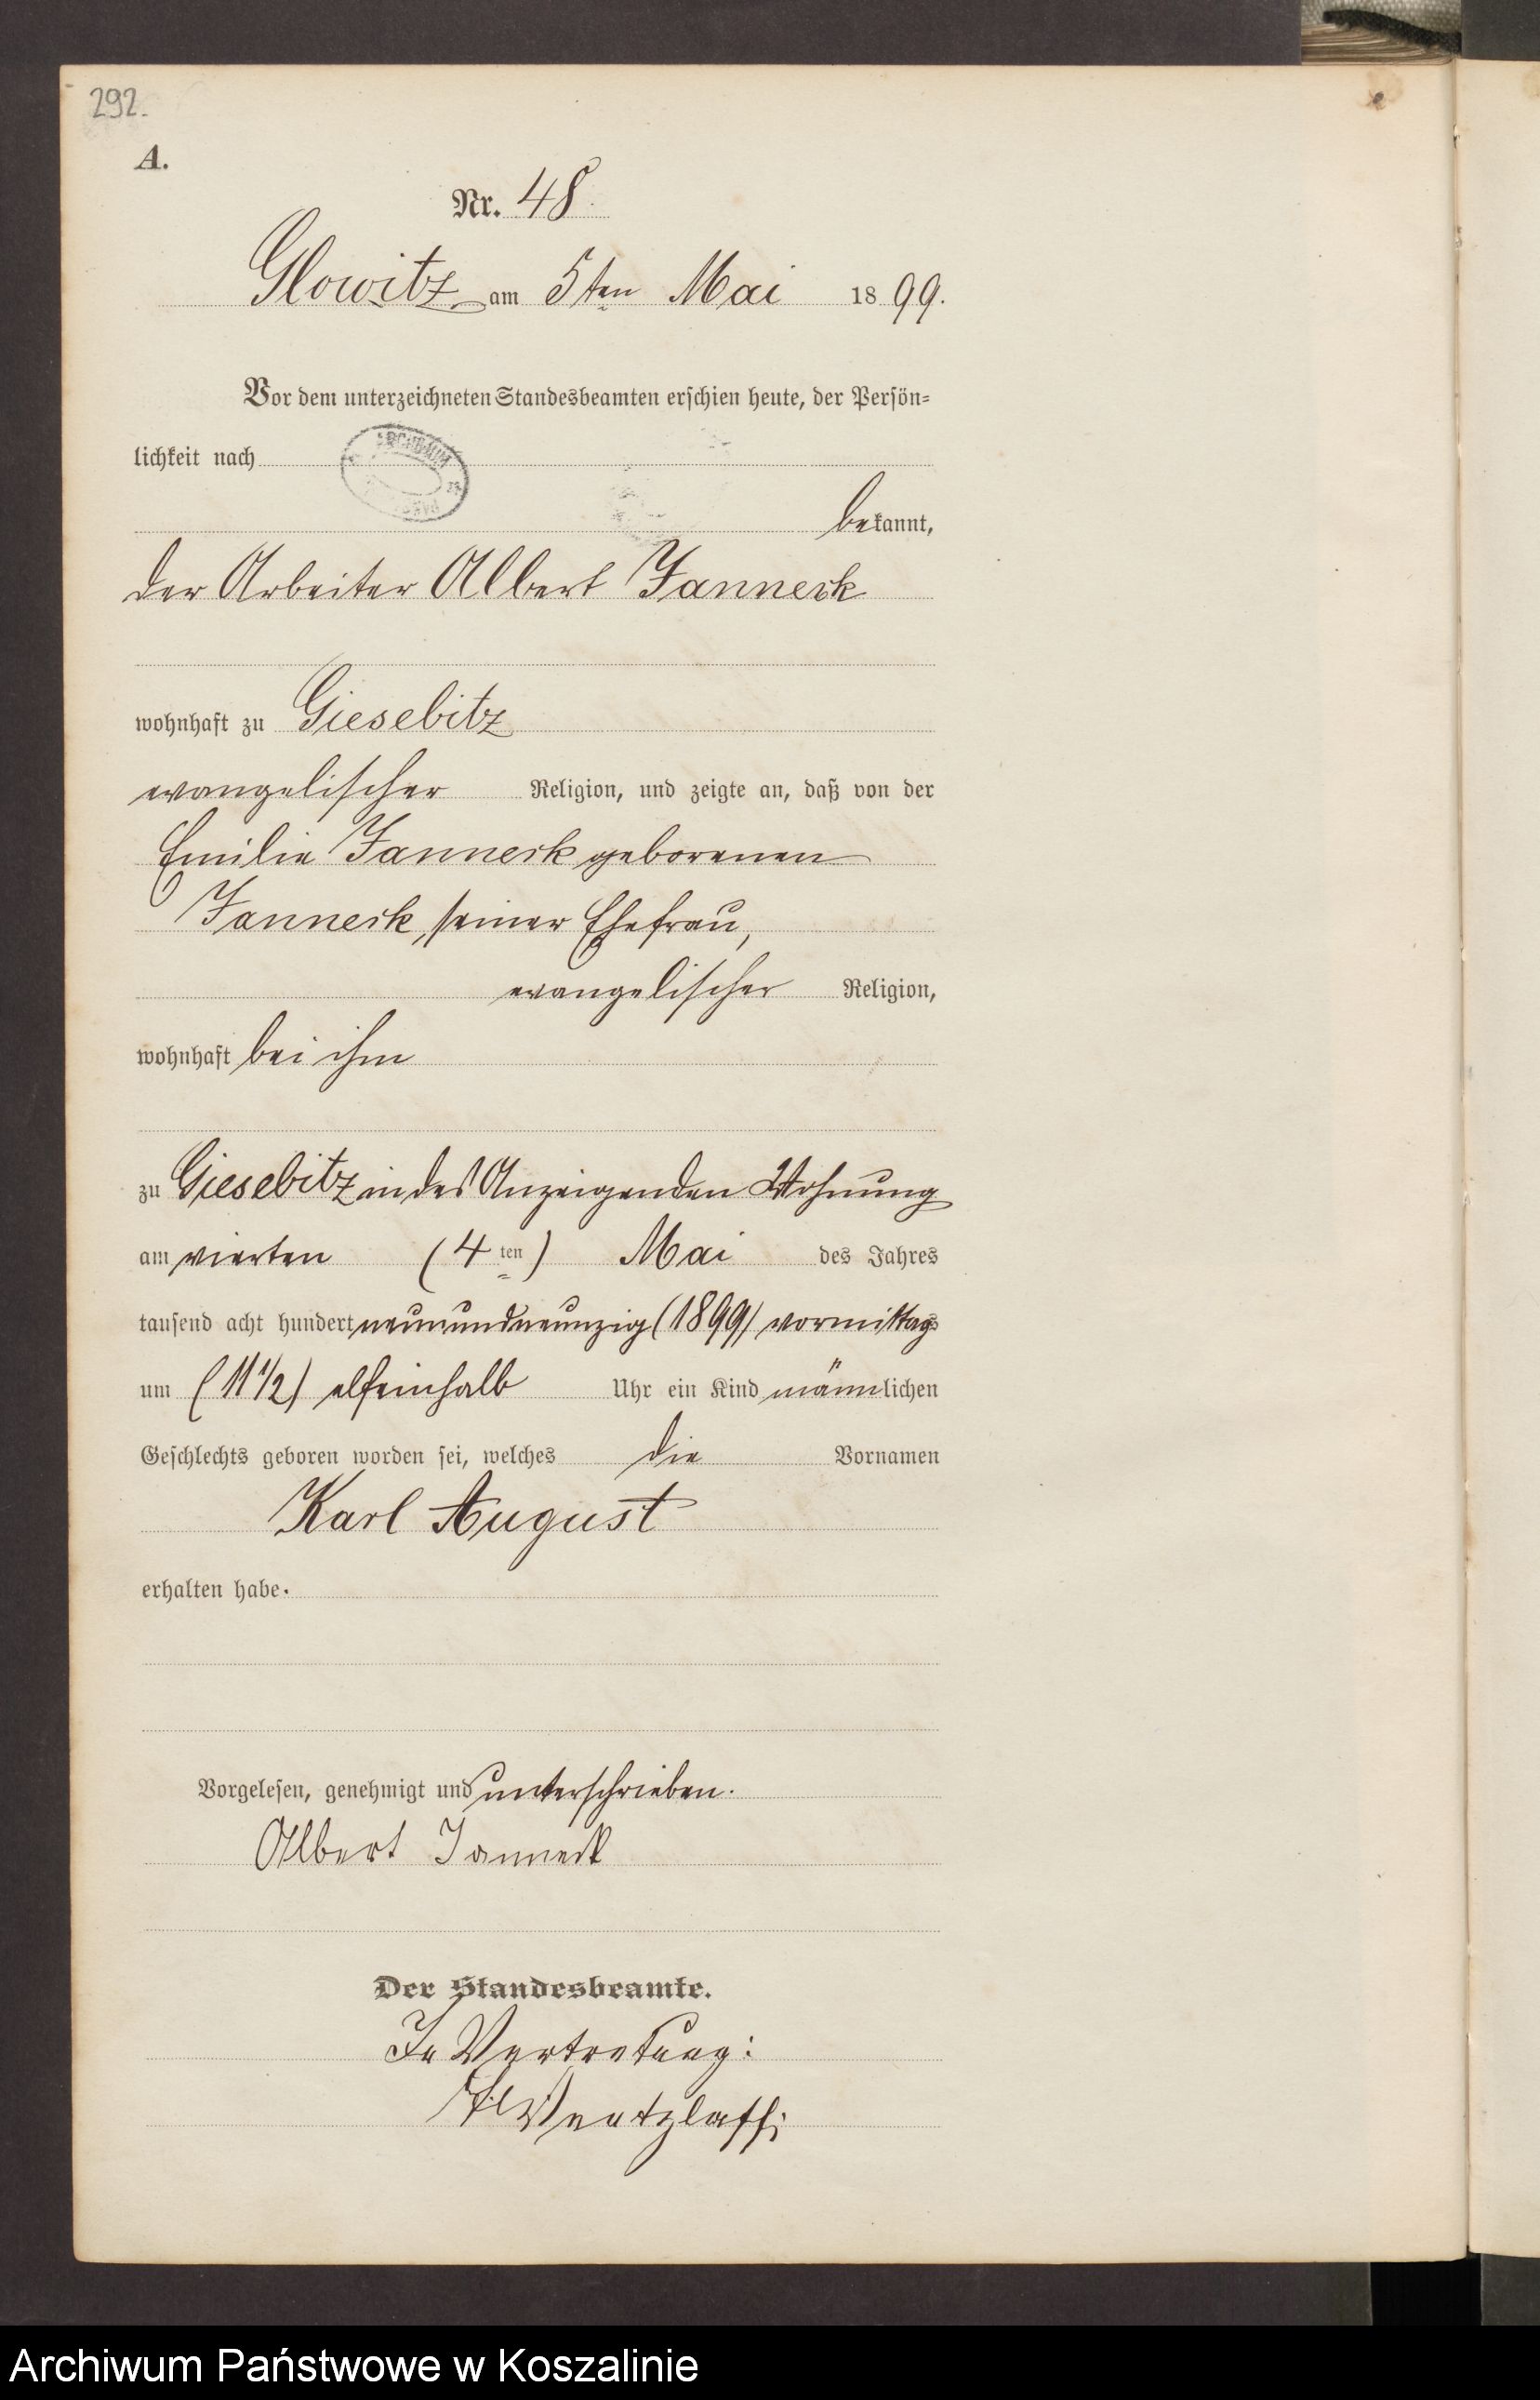 292.
A.
Nr. 48.
Glowitz am 5ten Mai 1899.
Vor dem unterzeichneten Standesbeamten erschien heute, der Persön-
lichkeit nach
ARCHIWUM
bekannt,
der Arbeiter Albert Janneck
wohnhaft zu Giesebitz
evangelischer Religion, und zeigte an, daß von der
Emilie Janneck geborenen
Janneck, seiner Ehefrau,
evangelischer Religion,
wohnhaft bei ihm
zu Giesebitz in des Anzeigenden Wohnung
am vierten (4ten) Mai des Jahres
tausend acht hundert neunundneunzig (1899) vormittags
um (11 1/2) elfeinhalb Uhr ein Kind männlichen
Geschlechts geboren worden sei, welches die Vornamen
Karl August
erhalten habe.
Vorgelesen, genehmigt und unterschrieben.
Albert Janneck
Der Standesbeamte.
In Vertretung:
Wentzlaff
Archiwum Państwowe w Koszalinie